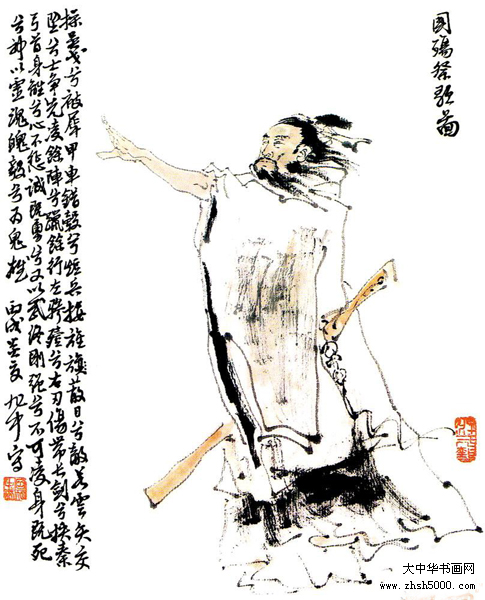 國殤祭歌圖
操吴戈兮被犀甲車錯轂兮短兵接旌旗蔽日兮敵若雲矢交
墜兮士争先凌餘陣兮躐餘行左驂殪兮右刃傷帶長劍兮挟秦
弓首身離兮心不懲誠既勇兮又以武终剛强兮不可凌身既死
兮神以靈魂魄毅兮为鬼雄 丙戌 写
大中华书画网
www.zhsh5000.com